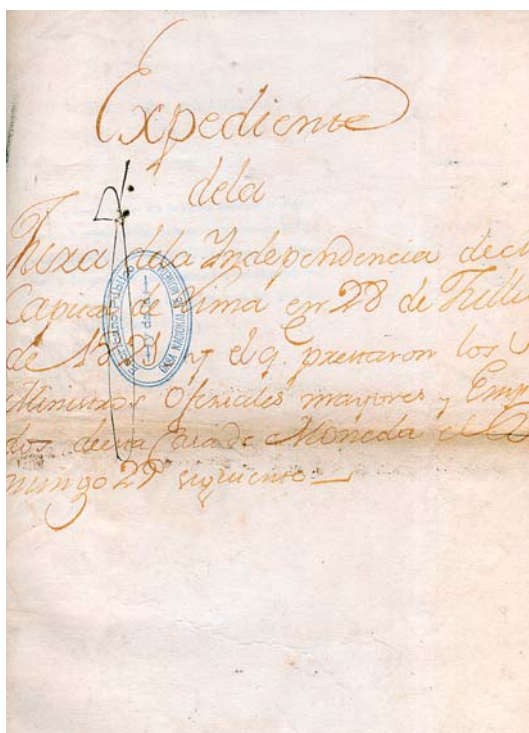 Expediente
dela
Jura dela Independencia de
Capital de Lima en 28 de Jull
de 1821 y el q. prestaron los
Ministros Oficiales mayores y Emp
dos de esta Casa de Moneda el
mingo 29 siguiente
CASA NACIONAL DE MONEDA